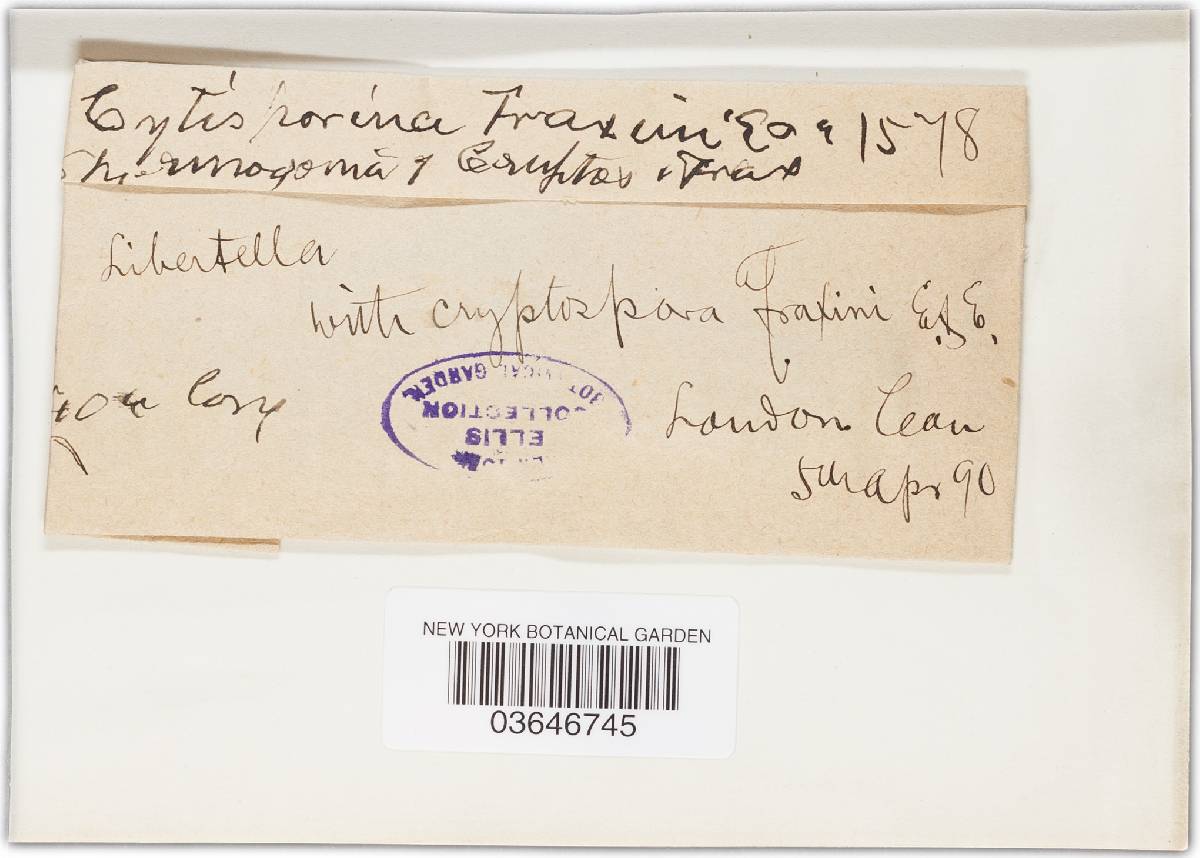 Cytisporina Fraxini E & E 1578
Spermogonia of Cryptos. Frax
Libertella
with cryptospora Fraxini E. & E.
London Can
5th Apr 90
BOTANICAL GARDEN
COLLECTION
ELLIS
NEW YORK BOTANICAL GARDEN
03646745